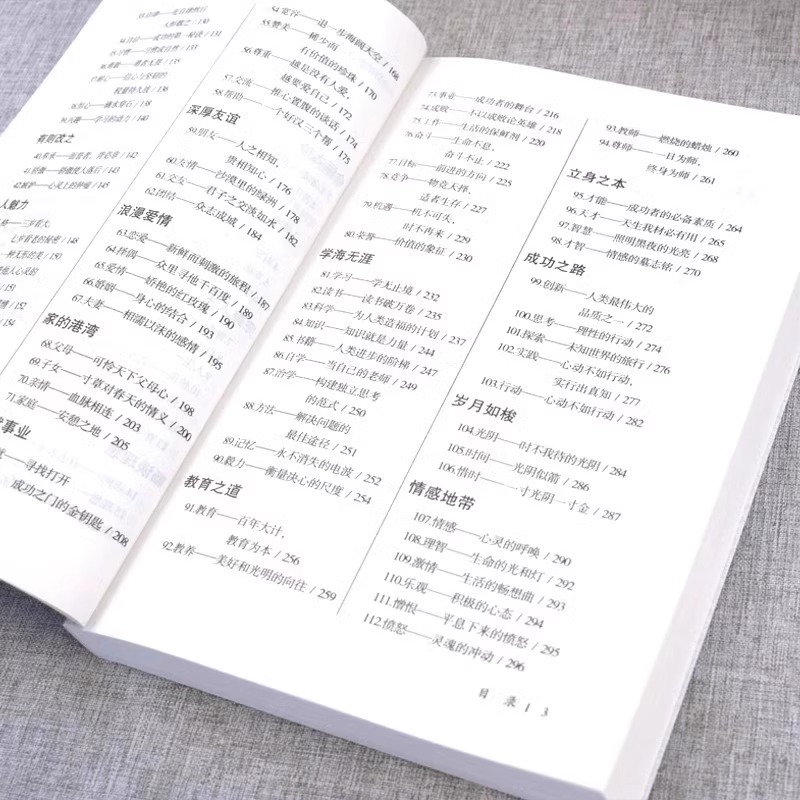 人形貌之 / 130
54.宽容——退一步海阔天空 / 166
55.赞美——稀少而
有价值的珍珠 / 170
56.尊重——越是没有人爱,
越要爱自己 / 172
57.交流——推心置腹的谈话 / 174
58.帮助——一个好汉三个帮 / 175
深厚友谊
59.朋友——人之相知,
贵相知心 / 176
60.友情——沙漠里的绿洲 / 178
61.交友——君子之交淡如水 / 182
62.团结——众志成城 / 184
浪漫爱情
63.恋爱——新鲜而刺激的旅程 / 187
64.择偶——众里寻他千百度 / 189
65.爱情——娇艳的红玫瑰 / 190
66.婚姻——身心的结合 / 193
67.夫妻——相濡以沫的感情 / 195
家的港湾
68.父母——可怜天下父母心 / 198
69.子女——寸草对春天的情义 / 200
70.亲情——血脉相连 / 203
71.家庭——安憩之地 / 205
事业
——寻找打开
成功之门的金钥匙 / 208
73.事业——成功者的舞台 / 216
74.成败——不以成败论英雄 / 218
75.工作——生活的保鲜剂 / 220
76.奋斗——生命不息,
奋斗不止 / 222
77.目标——前进的方向 / 225
78.竞争——物竞天择,
适者生存 / 227
79.机遇——机不可失,
时不再来 / 229
80.荣誉——价值的象征 / 230
学海无涯
81.学习——学无止境 / 232
82.读书——读书破万卷 / 235
83.科学——为人类造福的计划 / 237
84.知识——知识就是力量 / 244
85.书籍——人类进步的阶梯 / 247
86.自学——当自己的老师 / 249
87.治学——构建独立思考
的范式 / 250
88.方法——解决问题的
最佳途径 / 251
89.记忆——永不消失的电波 / 252
90.毅力——衡量决心的尺度 / 254
教育之道
91.教育——百年大计,
教育为本 / 256
92.教养——美好和光明的向往 / 259
93.教师——燃烧的蜡烛 / 260
94.尊师——一日为师,
终身为师 / 261
立身之本
95.才能——成功者的必备素质 / 264
96.天才——天生我材必有用 / 265
97.智慧——照明黑夜的光亮 / 268
98.才智——情感的墓志铭 / 270
成功之路
99.创新——人类最伟大的
品质之一 / 272
100.思考——理性的行动 / 274
101.探索——未知世界的旅行 / 276
102.实践——心动不如行动,
实行出真知 / 277
103.行动——心动不如行动 / 282
岁月如梭
104.光阴——时不我待的光阴 / 284
105.时间——光阴似箭 / 286
106.惜时——一寸光阴一寸金 / 287
情感地带
107.情感——心灵的呼唤 / 290
108.理智——生命的光和灯 / 292
109.激情——生活的畅想曲 / 293
110.乐观——积极的心态 / 294
111.憎恨——平息下来的愤怒 / 295
112.愤怒——灵魂的冲动 / 296
目 录 | 3